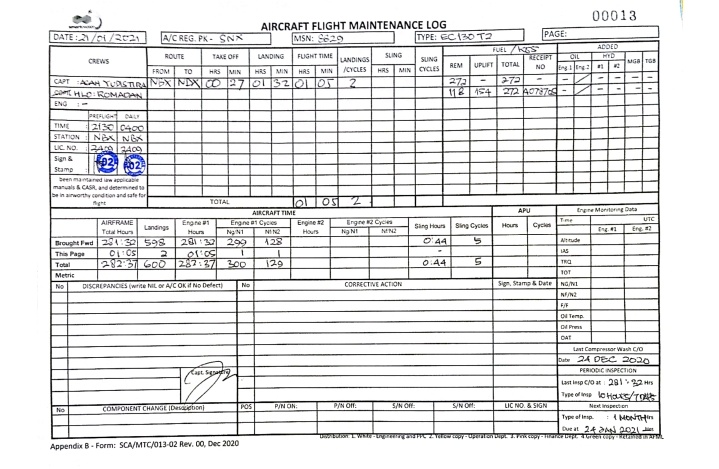 00013
AIRCRAFT FLIGHT MAINTENANCE LOG
DATE: 21/01/2021 A/C REG. PK - SNX MSN: 8629 TYPE: EC130 T2 PAGE:
CREWS ROUTE TAKE OFF LANDING FLIGHT TIME LANDINGS /CYCLES SLING SLING CYCLES FUEL / ADDED
FROM TO HRS MIN HRS MIN HRS MIN HRS MIN REM UPLIFT TOTAL RECEIPT NO OIL HYD MGB TGB
Eng.1 Eng.2 #1 #2
CAPT : NBX NBX 00 27 01 32 01 05 2 272 - 272 - -
HLO: ROMAGAN 118 154 272 - -
ENG : -
PREFLIGHT DAILY
TIME : 2130 0400
STATION : NBX NBX
LIC. NO. : 2409 2409
Sign & Stamp :
been maintained iaw applicable
manuals & CASR, and determined to
be in airworthy condition and safe for
flight TOTAL 01 05 2
AIRCRAFT TIME APU Engine Monitoring Data
AIRFRAME Total Hours Landings Engine #1 Hours Engine #1 Cycles Engine #2 Hours Engine #2 Cycles Sling Hours Sling Cycles Hours Cycles Time UTC
Ng/N1 Nf/N2 Ng/N1 Nf/N2 Eng. #1 Eng. #2
Brought Fwd 281:32 598 281:32 299 128 0:44 5 Altitude
This Page 01:05 2 01:05 1 1 - IAS
Total 282:37 600 282:37 300 129 0:44 5 TRQ
Metric TOT
No DISCREPANCIES (write NIL or A/C OK if No Defect) No CORRECTIVE ACTION Sign, Stamp & Date NG/N1
NF/N2
F/F
Oil Temp.
Oil Press
OAT
Last Compressor Wash C/O
Date 24 DEC 2020
Capt. Signature PERIODIC INSPECTION
Last Insp C/O at : 281:32 Hrs
Type of Insp
No COMPONENT CHANGE (Description) POS P/N ON: P/N Off: S/N Off: S/N Off: LIC NO. & SIGN Next Inspection
Type of Insp. : 1 MONTH Hrs
Due at 24 JAN 2021 Hrs
Distribution: 1. White - Engineering and PPC 2. Yellow copy - Operation Dept. 3. Pink copy - Finance Dept. 4 Green copy - Retained in AFML
Appendix B - Form: SCA/MTC/013-02 Rev. 00, Dec 2020